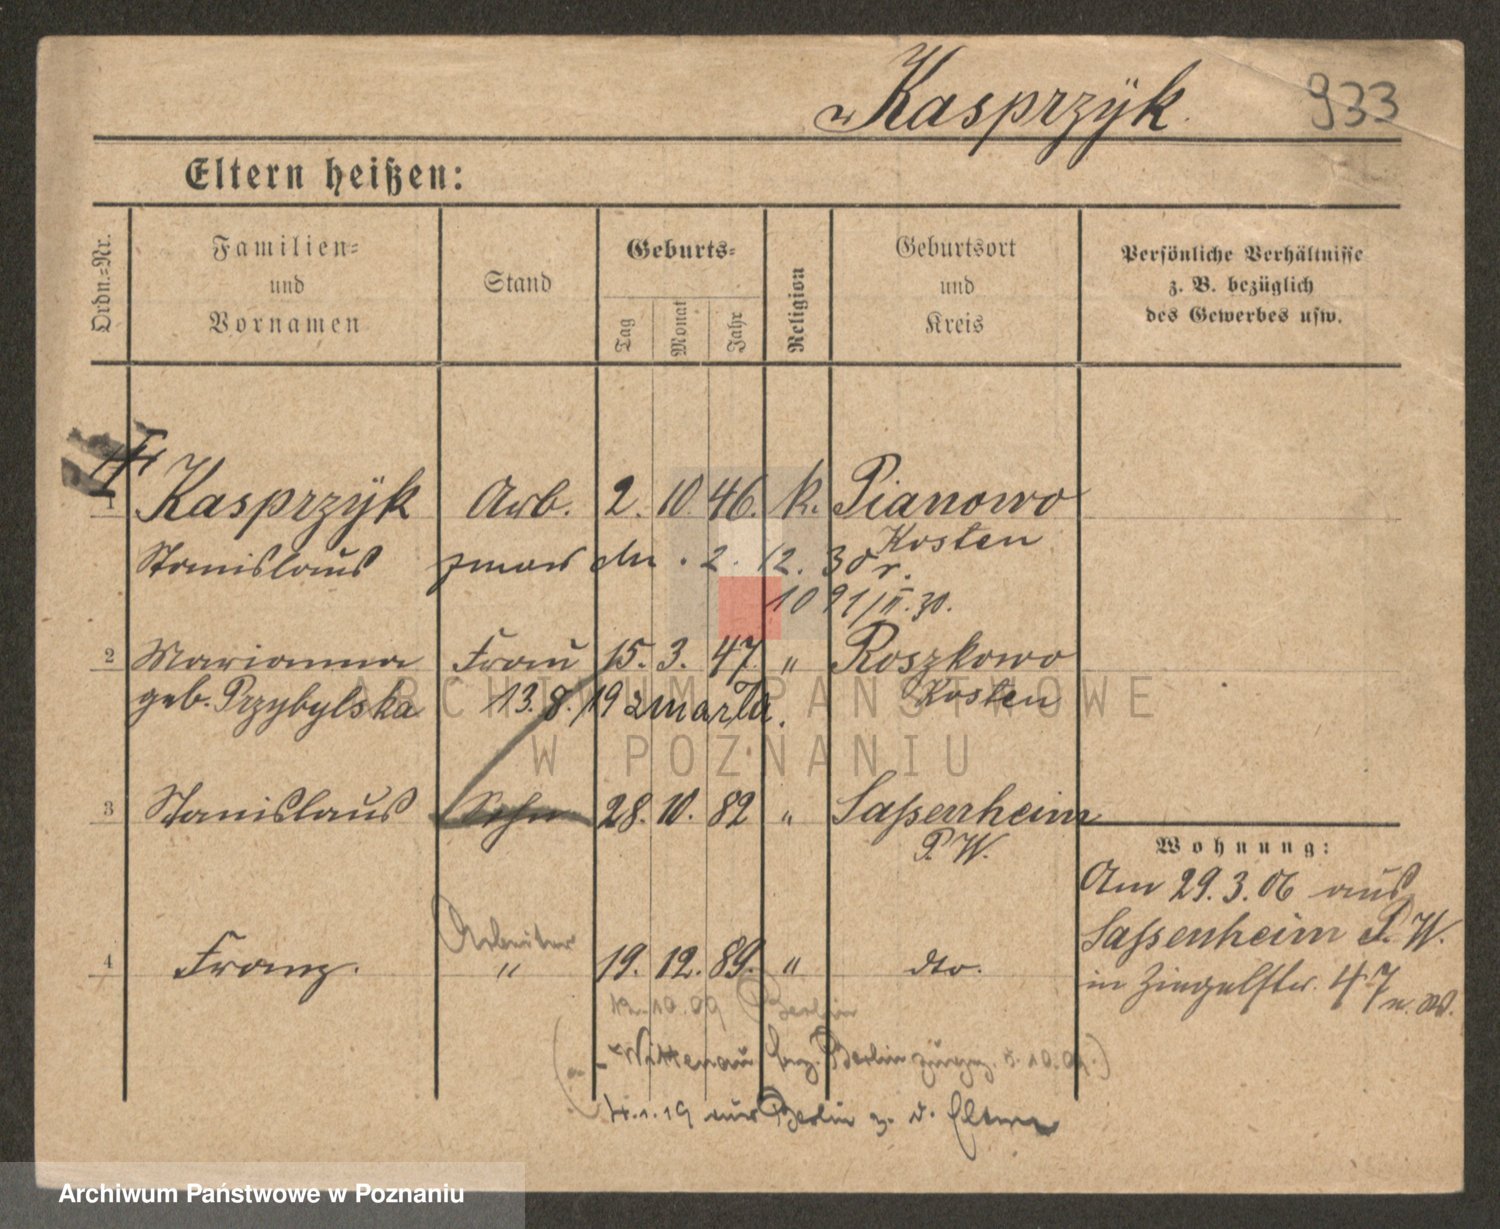 Kasprzÿk. 933
Eltern heißen:
Ordn.-Nr.
Familien-
und
Vornamen
Stand
Geburts-
Tag
Monat
Jahr
Religion
Geburtsort
und
Kreis
Persönliche Verhältnisse
z. B. bezüglich
des Gewerbes usw.
1 Kasprzÿk Arb. 2. 10. 46. k. Pianowo
Kosten
Stanislaus zmarł dn. 2. 12. 30 r.
1091/II.30.
2 Marianna Frau 15. 3. 47. " Roszkowo
geb. Przybylska 13.8.192 zmarła. Kosten
3 Stanislaus Sohn 28. 10. 82 " Saßenheim
P. W.
Wohnung:
Am 29.3.06 aus
Saßenheim P. W.
in Ziegelstr. 47
Arbeiter
4 Franz. " 19. 12. 89. " dto.
12.10.09 Berlin
Wittenau Berlin
1.19 aus Berlin z. d. Eltern
ARCHIWUM PAŃSTWOWE
W POZNANIU
Archiwum Państwowe w Poznaniu